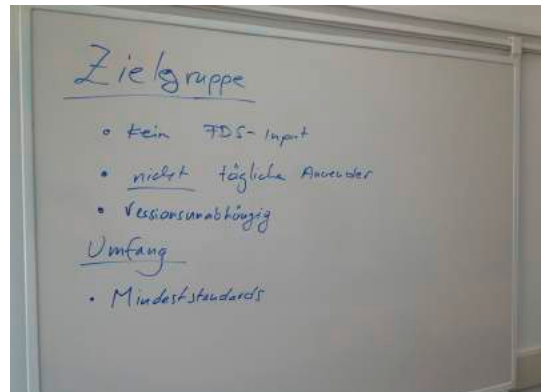 Zielgruppe
• Kein FDS-Input
• nicht tägliche Anwender
• Versionsunabhängig
Umfang
• Mindeststandards